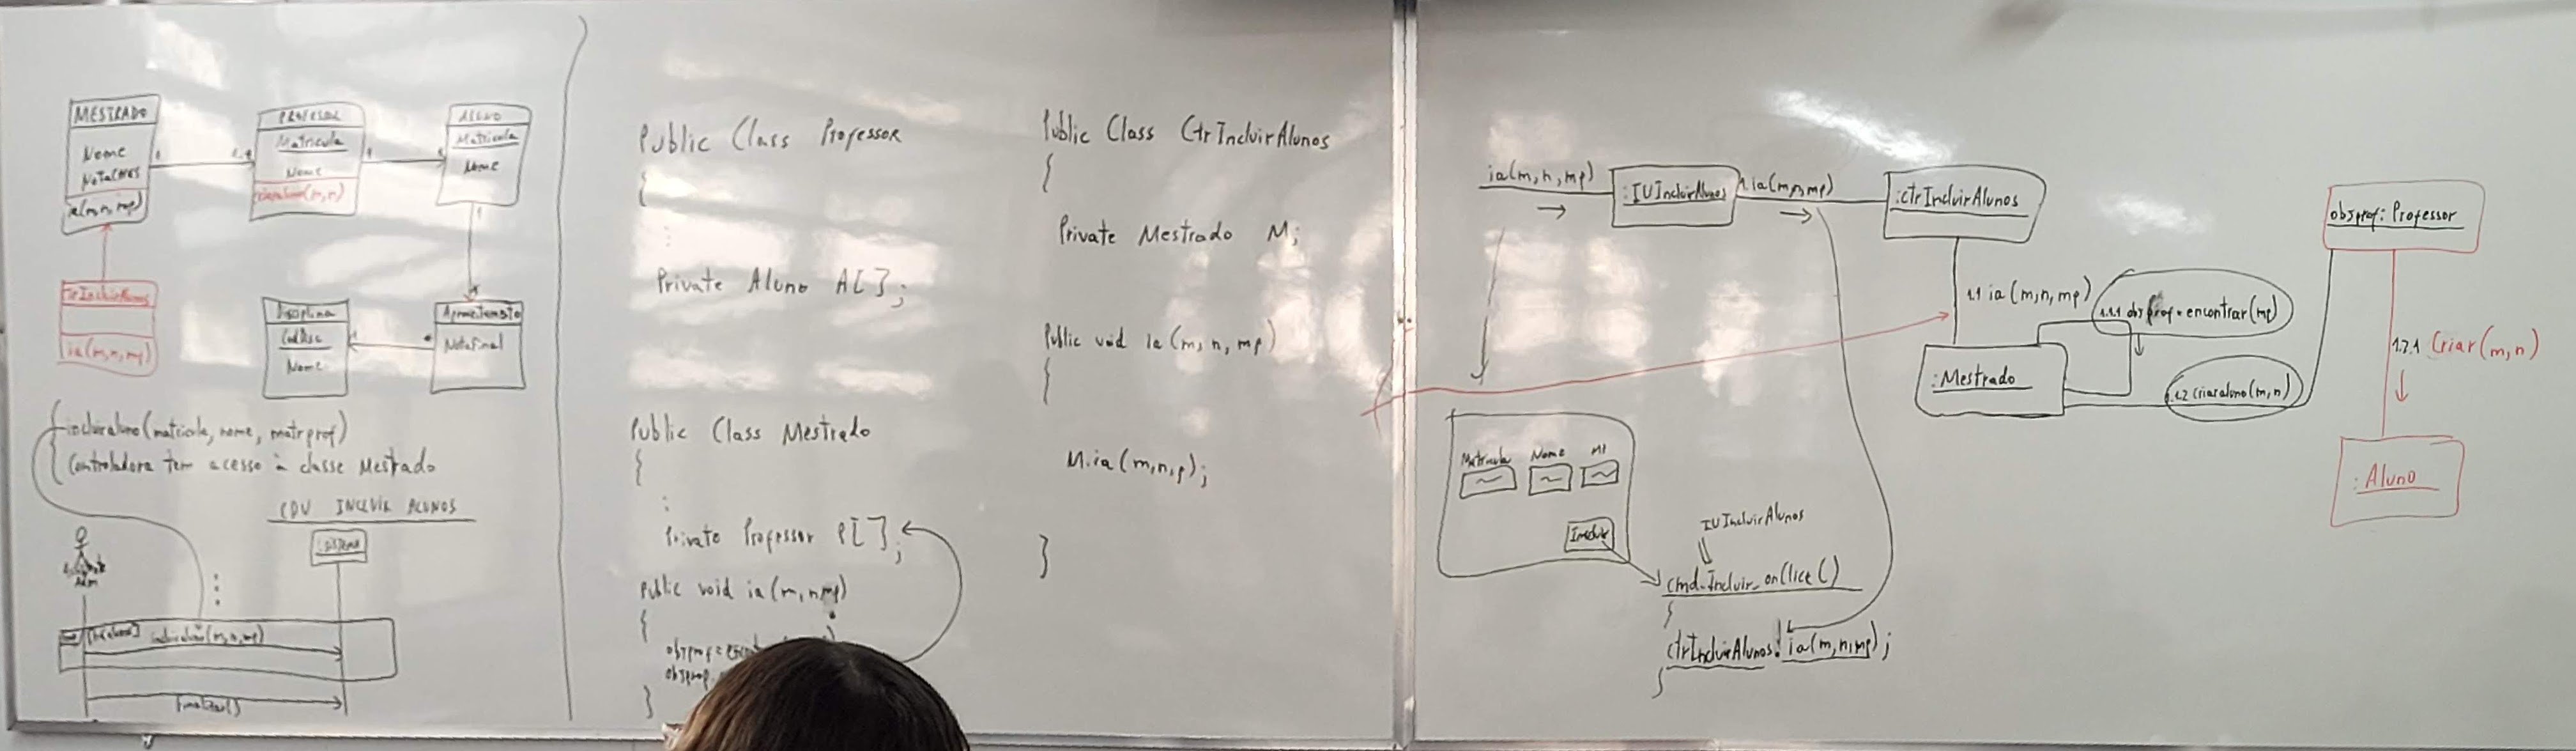 MESTRADO
Nome
ia(m,n,mp)
1
1..*
PROFESSOR
Matricula
Nome
criaraluno(m,n)
1
ALUNO
Matricula
Nome
1
CtrIncluirAlunos
ia(m,n,mp)
Disciplina
CodDisc
Nome
NotaFinal
incluiraluno(matricula, nome, matrprof)
Controladora tem acesso à classe Mestrado
CDU INCLUIR ALUNOS
Adm
:sistema
incluiraluno(m,n,mp)
finalizar()
Public Class Professor
{
:
Private Aluno A[];
Public Class Mestrado
{
:
Private Professor P[];
Public void ia(m,n,mp)
{
objprof =
objprof
}
Public Class CtrIncluirAlunos
{
Private Mestrado M;
Public void ia(m,n,mp)
{
M.ia(m,n,p);
}
ia(m,n,mp)
:IUIncluirAlunos
1.ia(m,n,mp)
:CtrIncluirAlunos
1.1 ia(m,n,mp)
:Mestrado
1.1.1 objprof=encontrar(mp)
1.1.2 criaraluno(m,n)
objprof: Professor
1.2.1 Criar(m,n)
:Aluno
Matricula Nome
Incluir
IUIncluirAlunos
cmd_Incluir_onClice()
{
CtrIncluirAlunos.ia(m,n,mp);
}